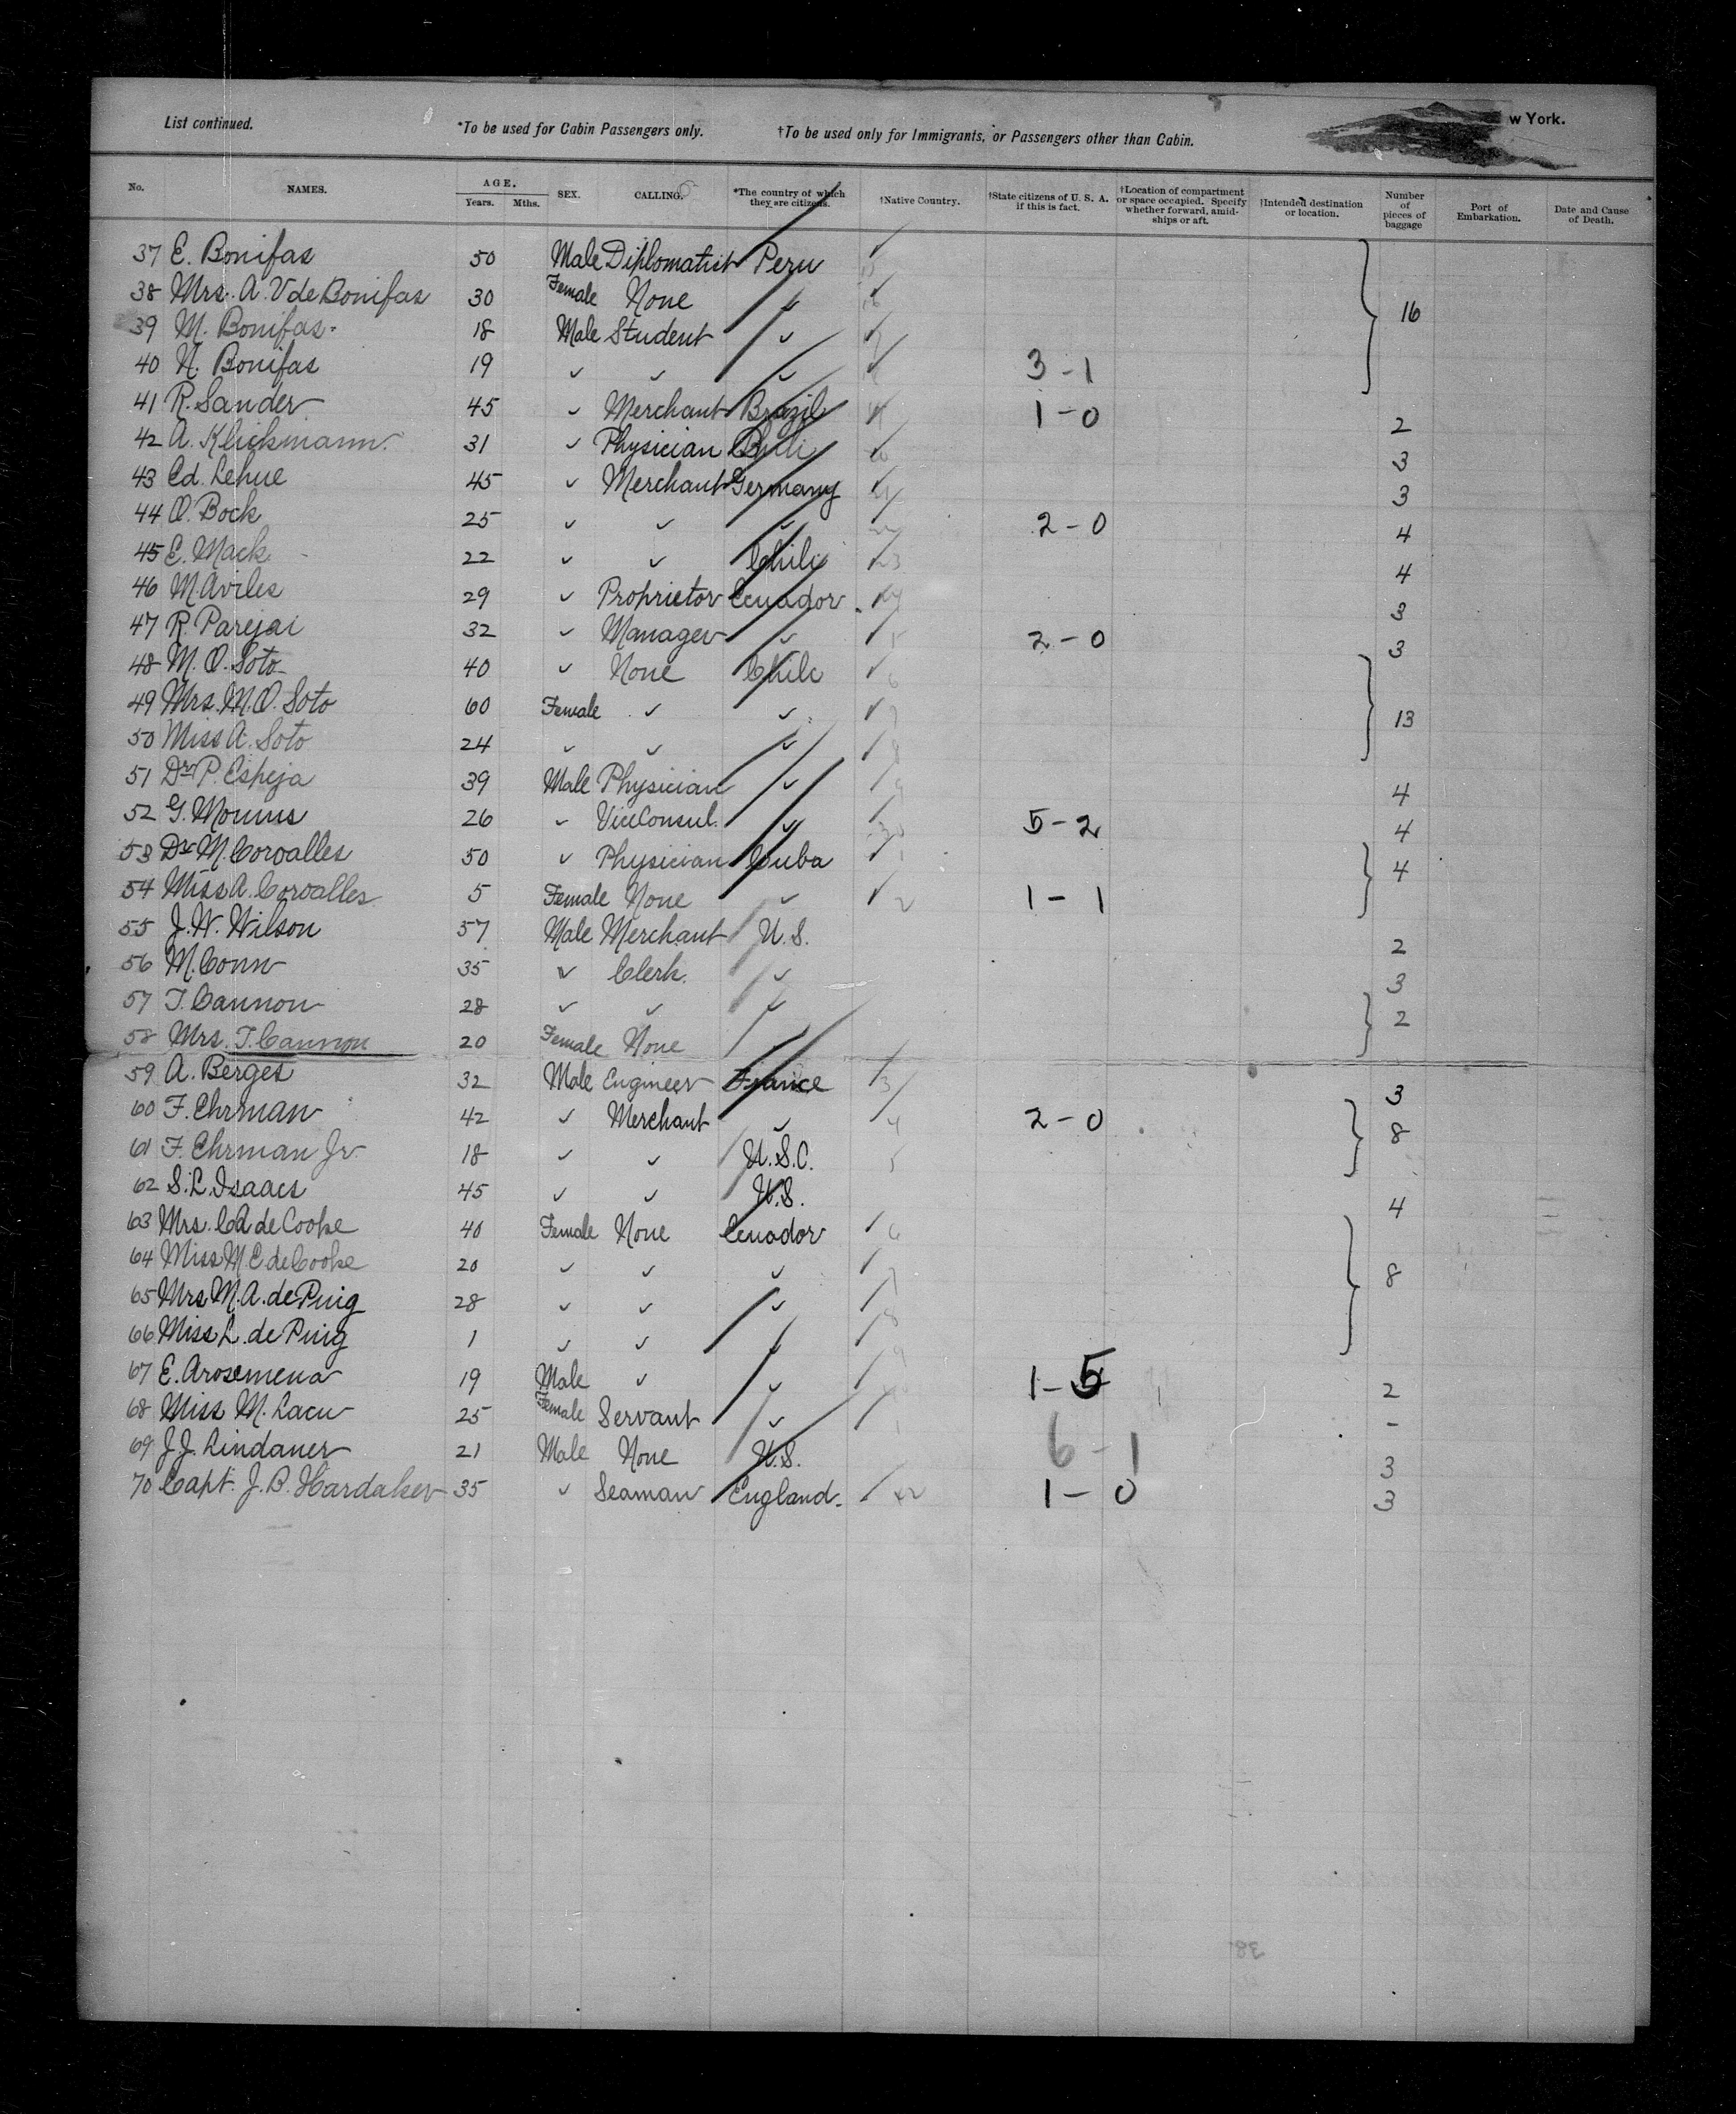 List continued. *To be used for Cabin Passengers only. †To be used only for Immigrants, or Passengers other than Cabin. w York.
No. NAMES. AGE. Years. Mths. SEX. CALLING. *The country of which they are citizens. †Native Country. †State citizens of U. S. A. if this is fact. †Location of compartment or space occupied. Specify whether forward, amidships or aft. †Intended destination or location. Number of pieces of baggage Port of Embarkation. Date and Cause of Death.
37 E. Bonifas 50 Male Diplomatist Peru
38 Mrs. A. V de Bonifas 30 Female None ✓ 16
39 M. Bonifas 18 Male Student ✓
40 N. Bonifas 19 ✓ ✓ ✓ 3-1
41 R. Sander 45 ✓ Merchant Brazil 1-0 2
42 A. Klickmann 31 ✓ Physician 3
43 Ed. Lehue 45 ✓ Merchant Germany 3
44 O. Bock 25 ✓ ✓ ✓ 2-0 4
45 E. Mack 22 ✓ ✓ Chili 4
46 M. Aviles 29 ✓ Proprietor Ecuador 3
47 R. Parejai 32 ✓ Manager ✓ 2-0 3
48 M. O. Soto 40 ✓ None Chile
49 Mrs. M. O. Soto 60 Female ✓ ✓ 13
50 Miss A. Soto 24 ✓ ✓ ✓
51 Dr. P. Espeja 39 Male Physician ✓ 4
52 G. 26 ✓ Vice Consul. ✓ 5-2 4
53 Dr. M. Corvalles 50 ✓ Physician Cuba 4
54 Miss A. Corvalles 5 Female None ✓ 1-1
55 J. W. Wilson 57 Male Merchant U. S. 2
56 M. Conn 35 ✓ Clerk. ✓ 3
57 T. Cannon 28 ✓ ✓ ✓ 2
58 Mrs. T. Cannon 20 Female None
59 A. Berges 32 Male Engineer France 3
60 F. Ehrman 42 ✓ Merchant ✓ 2-0 8
61 F. Ehrman Jr. 18 ✓ ✓ U.S.C.
62 S. L. Isaacs 45 ✓ ✓ U.S. 4
63 Mrs. C A de Cooke 40 Female None Ecuador
64 Miss M E de Cooke 20 ✓ ✓ ✓ 8
65 Mrs M. A. de Puig 28 ✓ ✓ ✓
66 Miss L. de Puig 1 ✓ ✓ ✓
67 E. Arosemena 19 Male ✓ ✓ 1-5 2
68 Miss M. Lacu 25 Female Servant ✓ -
69 J. J. Lindauer 21 Male None U.S. 6-1 3
70 Capt. J. B. Hardaker 35 ✓ Seaman England. 1-0 3